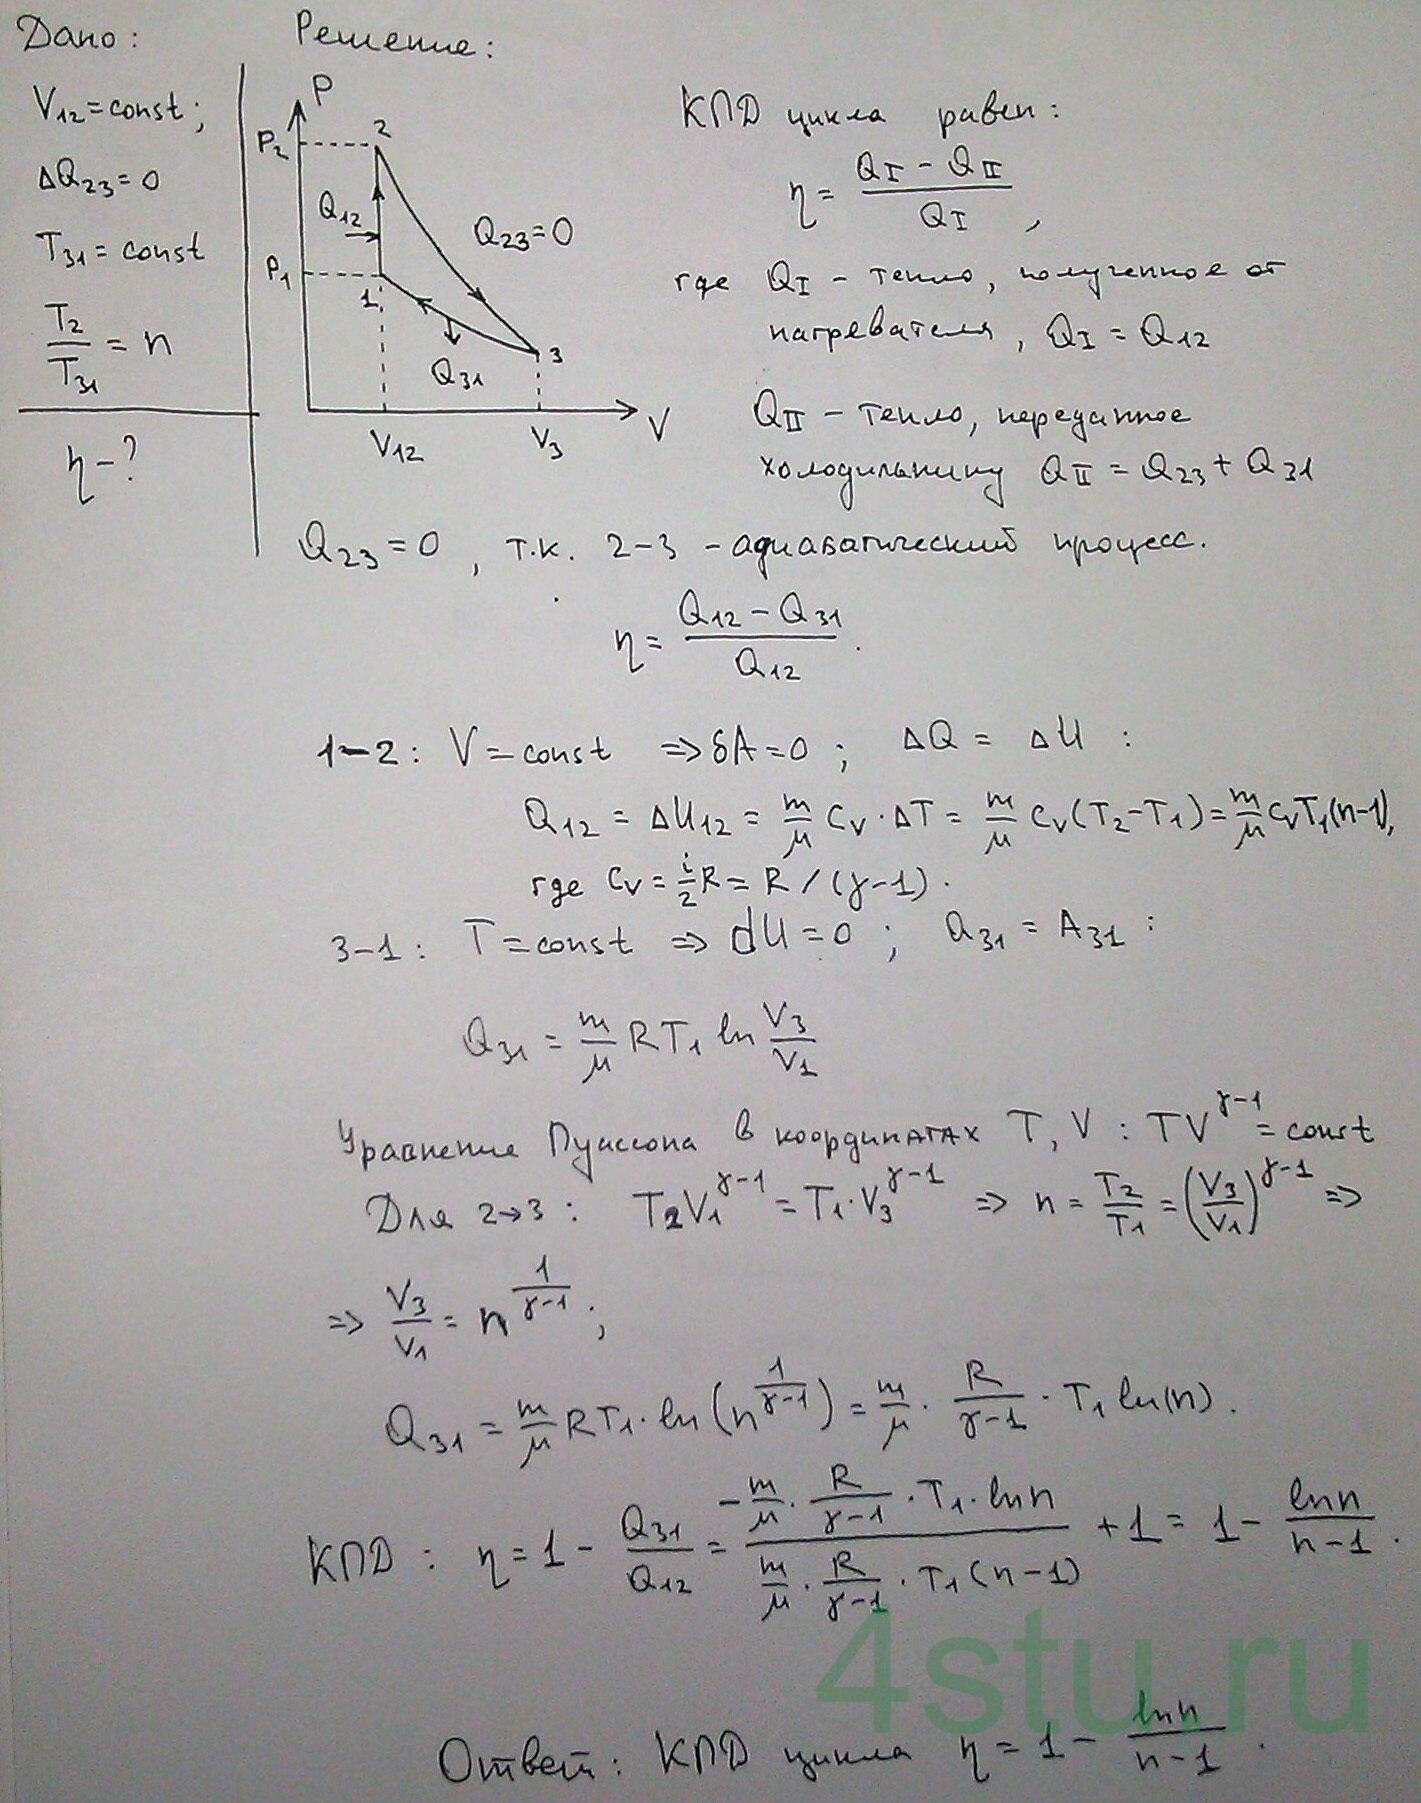 Дано:
Решение:
V₁₂ = const;
ΔQ₂₃ = 0
T₃₁ = const
T₂/T₃₁ = n
η - ?
P
P₂
2
Q₁₂
Q₂₃ = 0
P₁
1
3
Q₃₁
V₁₂
V₃
V
КПД цикла равен:
η = (Q_I - Q_II)/Q_I,
где Q_I - тепло, полученное от
нагревателя, Q_I = Q₁₂
Q_II - тепло, переданное
холодильнику Q_II = Q₂₃ + Q₃₁
Q₂₃ = 0, т.к. 2-3 - адиабатический процесс.
η = (Q₁₂ - Q₃₁)/Q₁₂.
1-2: V = const => δA = 0; ΔQ = ΔU:
Q₁₂ = ΔU₁₂ = m/μ C_V · ΔT = m/μ C_V (T₂ - T₁) = m/μ C_V T₁(n-1),
где C_V = i/2 R = R/(γ-1).
3-1: T = const => dU = 0; Q₃₁ = A₃₁:
Q₃₁ = m/μ RT₁ ln V₃/V₁
Уравнение Пуассона в координатах T, V: TV^(γ-1) = const
Для 2→3: T₂V₁^(γ-1) = T₁·V₃^(γ-1) => n = T₂/T₁ = (V₃/V₁)^(γ-1) =>
=> V₃/V₁ = n^(1/(γ-1));
Q₃₁ = m/μ RT₁ · ln(n^(1/(γ-1))) = m/μ · R/(γ-1) · T₁ ln(n).
КПД: η = 1 - Q₃₁/Q₁₂ = (-m/μ · R/(γ-1) · T₁ · ln n)/(m/μ · R/(γ-1) · T₁(n-1)) + 1 = 1 - ln n/(n-1).
4stu.ru
Ответ: КПД цикла η = 1 - ln n/(n-1).